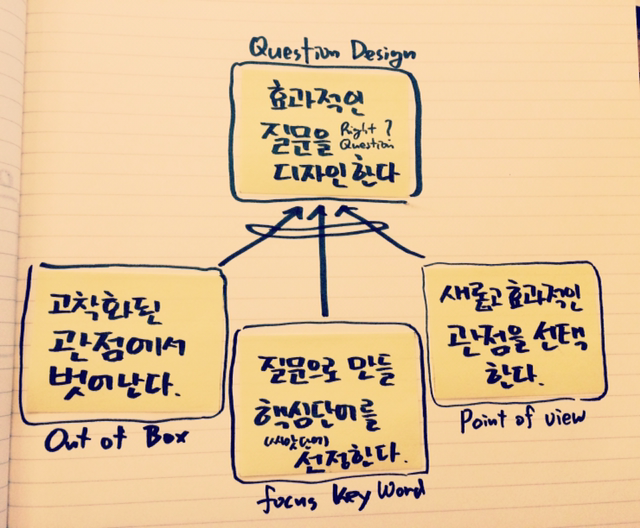 Question Design
효과적인
질문을 Right ?
Question
디자인한다
고착화된
관점에서
벗어난다.
Out of Box
질문으로 만들
핵심단어를
(씨앗단어)
선정한다.
focus Key Word
새롭고 효과적인
관점을 선택
한다.
Point of view